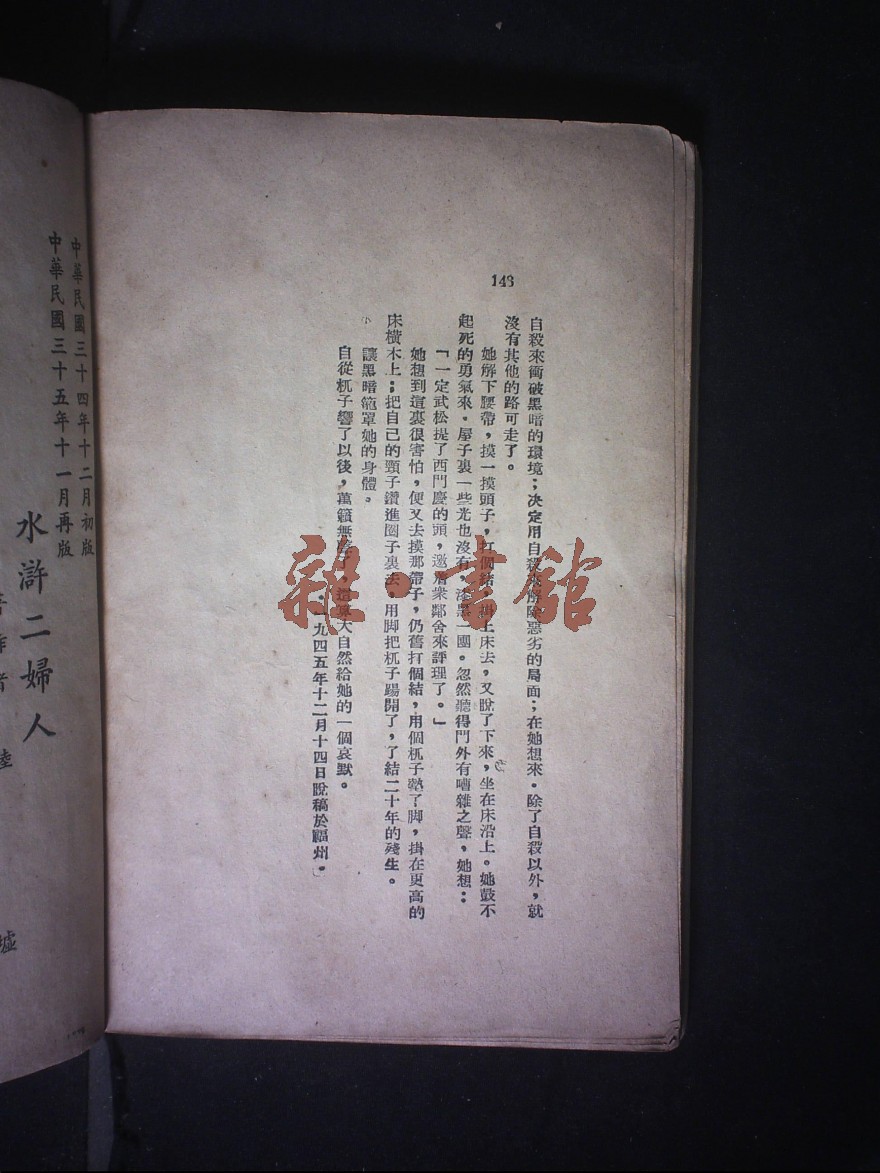 143
自殺來衝破黑暗的環境；決定用自殺來解除惡劣的局面；在她想來．除了自殺以外，就
沒有其他的路可走了。
她解下腰帶，摸一摸頭子，打個結，掛上床去，又脫了下來，坐在床沿上。她鼓不
起死的勇氣來．屋子裏一些光也沒有，漆黑一團。忽然聽得門外有嘈雜之聲，她想：
「一定武松提了西門慶的頭，邀眾鄰舍來評理了。」
她想到這裏很害怕，便又去摸那帶子，仍舊打個結，用個杌子墊了脚，掛在更高的
床橫木上；把自己的頸子鑽進圈子裏去．用脚把杌子踢開了，了結二十年的殘生。
讓黑暗籠罩她的身體。
自從杌子響了以後，萬籟無聲了，這算大自然給她的一個哀默。
．一九四五年十二月十四日脫稿於福州．
中華民國三十四年十二月初版
中華民國三十五年十一月再版
水滸二婦人
著作者 陸
墟
雜·書館